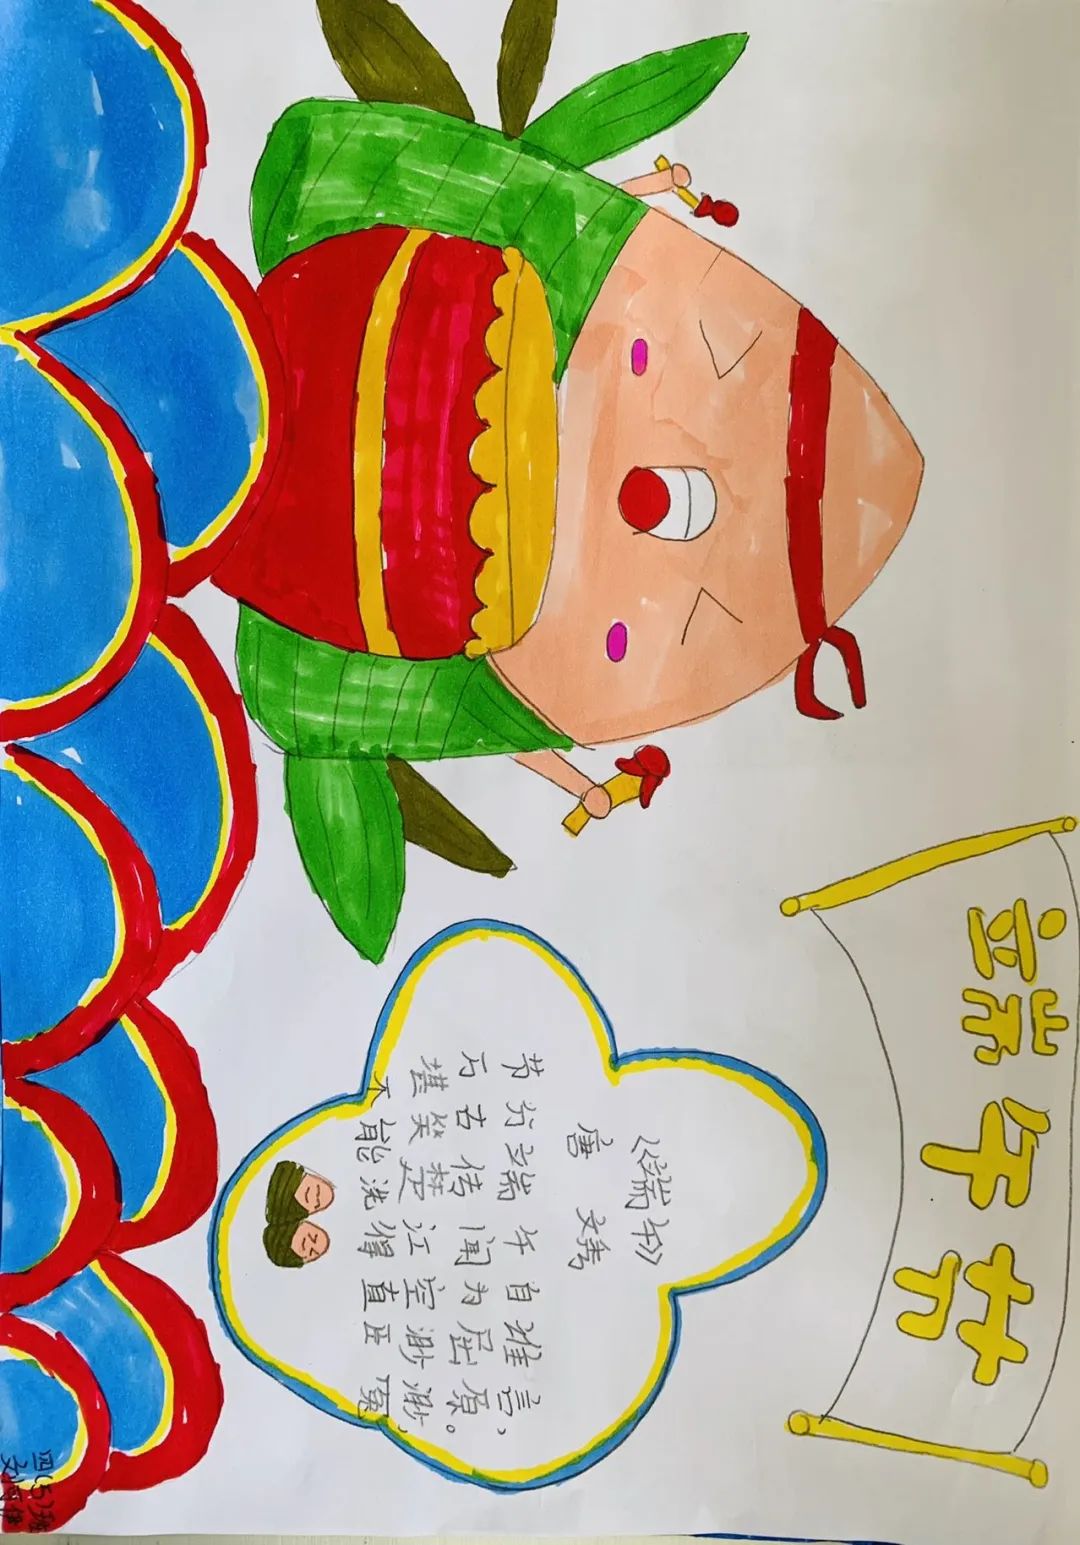 端午节
《端午》
唐 文秀
节分端午自谁言，
万古传闻为屈原。
堪笑楚江空渺渺，
不能洗得直臣冤
四(5)班